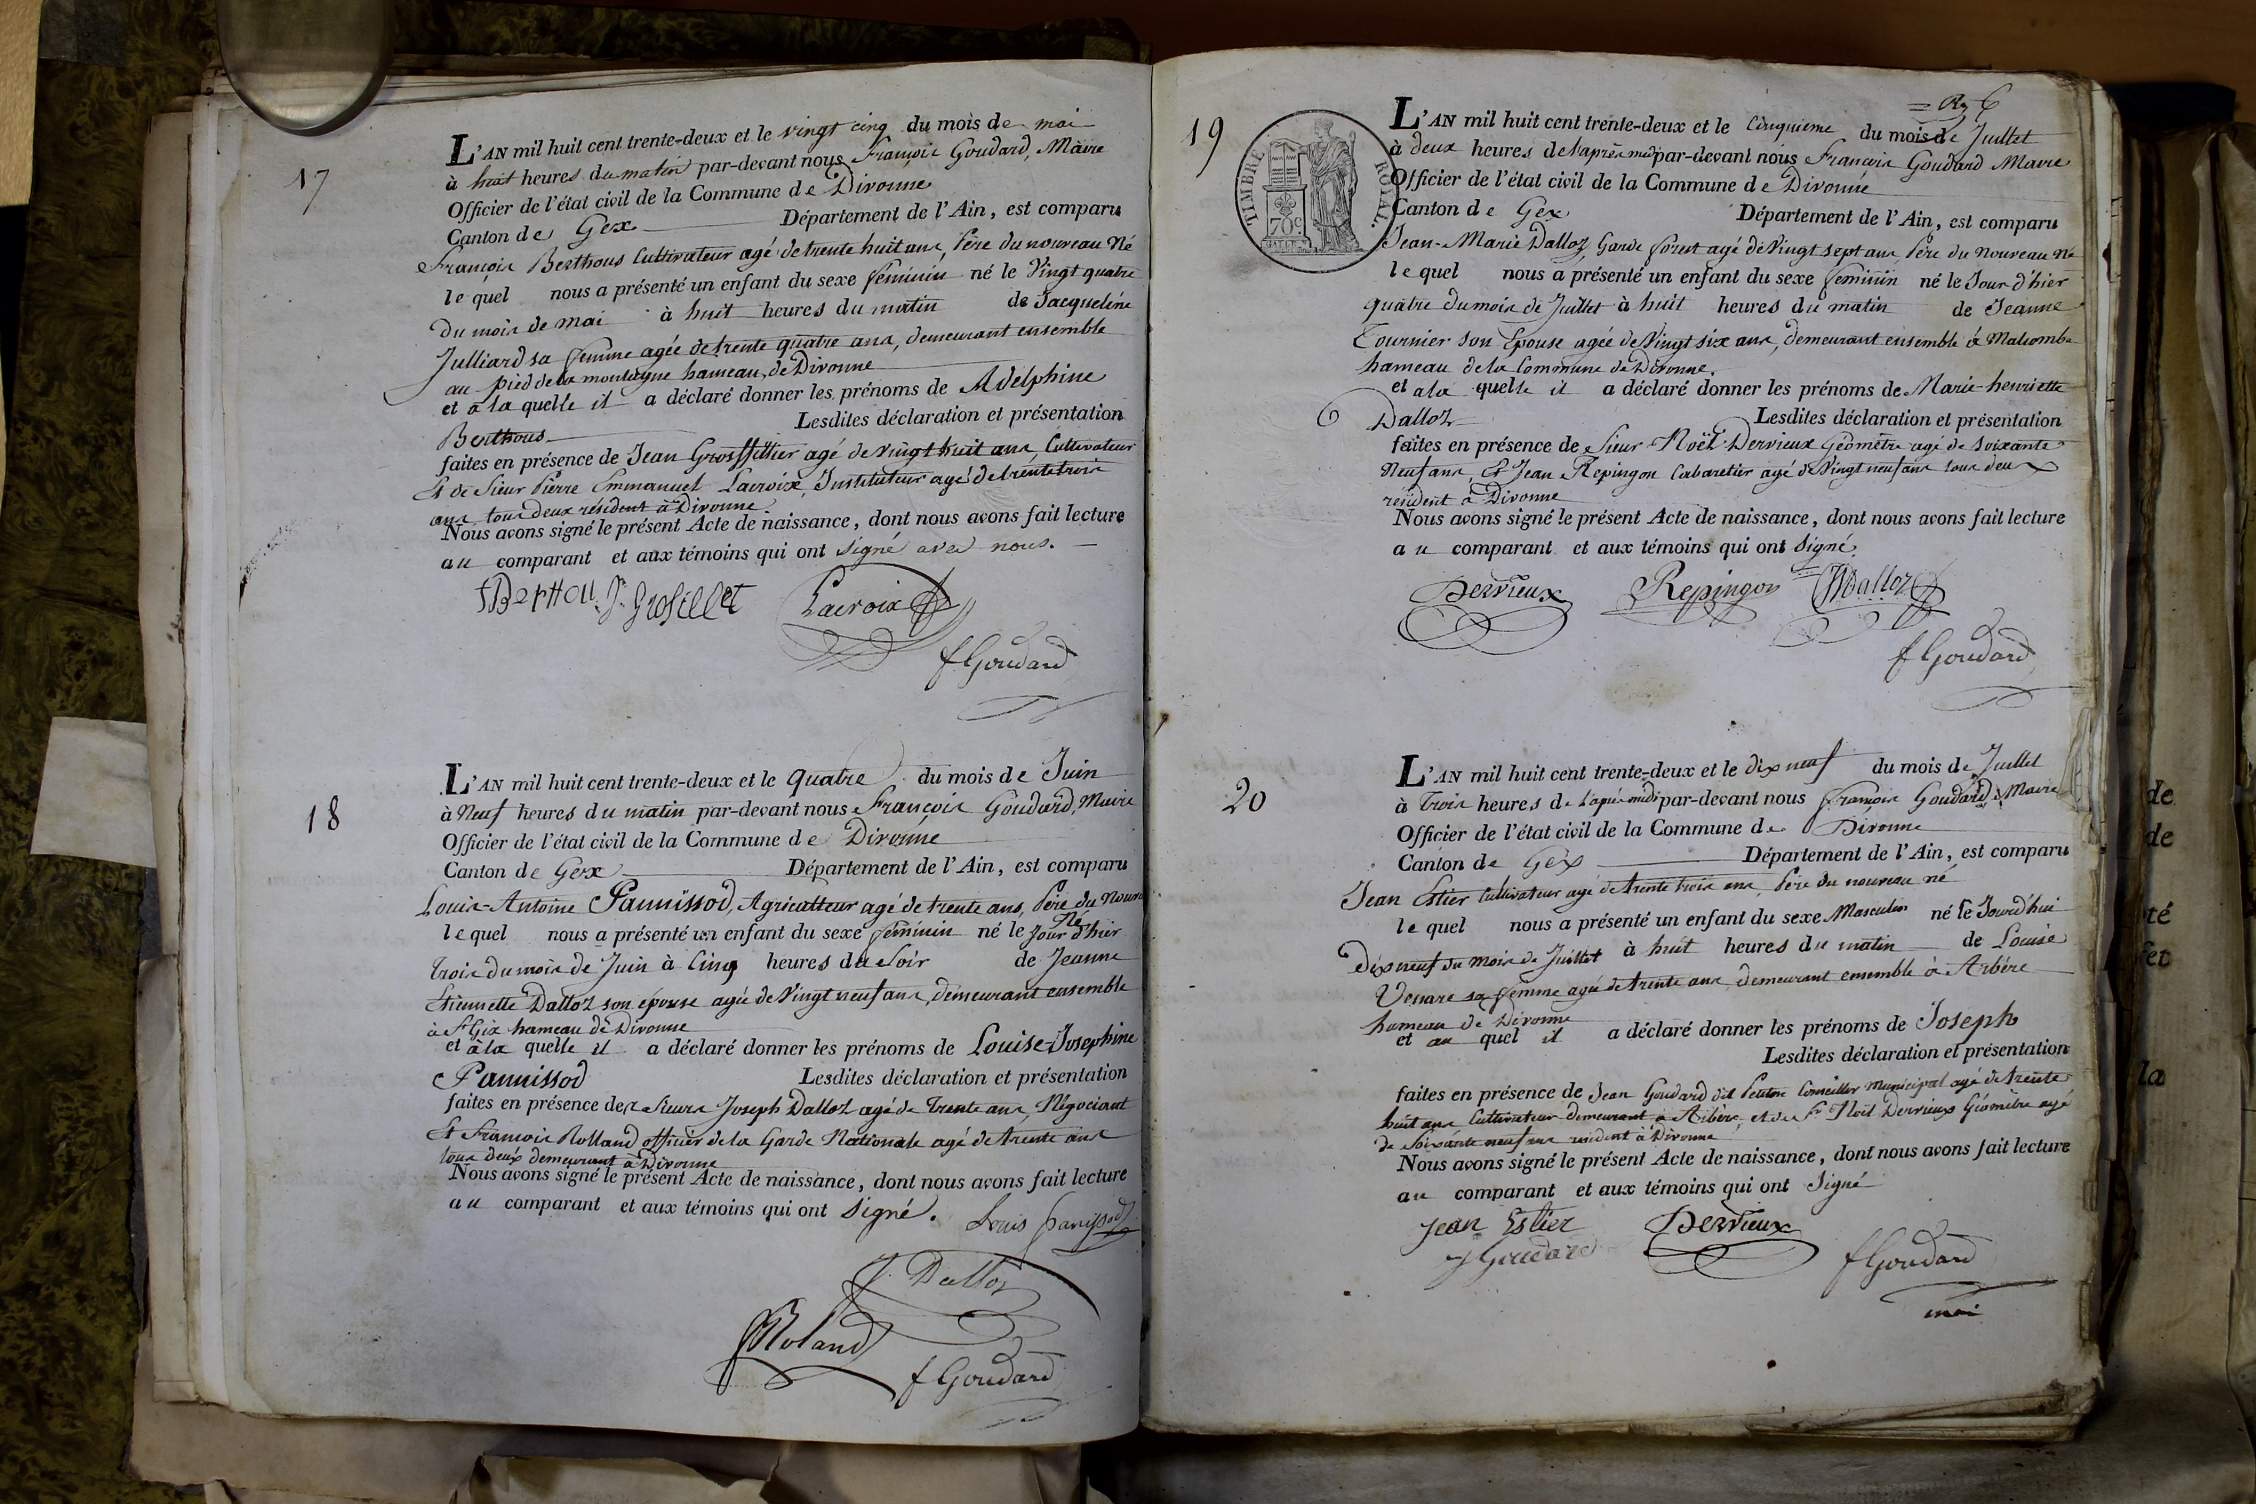 17
L'AN mil huit cent trente-deux et le vingt cinq du mois de mai
à huit heures du matin par-devant nous François Goudard, Maire
Officier de l'état civil de la Commune de Divonne
Canton de Gex Département de l'Ain, est comparu
François Berthous Cultivateur agé de trente huit ans, Père du nouveau Né
lequel nous a présenté un enfant du sexe féminin né le Vingt quatre
du mois de mai à huit heures du matin de Jacqueline
Julliard sa femme agée de trente quatre ans, demeurant ensemble
au pied de la montagne hameau de Divonne
et à la quelle il a déclaré donner les prénoms de Adelphine
Berthous Lesdites déclaration et présentation
faites en présence de Jean Grosfillier agé de vingt huit ans, Cultivateur
Et de Sieur Pierre Emmanuel Lacroix, Instituteur agé de trente trois
ans tous deux résident à Divonne.
Nous avons signé le présent Acte de naissance, dont nous avons fait lecture
au comparant et aux témoins qui ont signé avec nous.
fBerthou J. Grosillet Lacroix
f Goudard
18
L'AN mil huit cent trente-deux et le quatre du mois de Juin
à Neuf heures du matin par-devant nous François Goudard, Maire
Officier de l'état civil de la Commune de Divonne
Canton de Gex Département de l'Ain, est comparu
Louis-Antoine Pannissod, Agriculteur agé de trente ans, Père du Nouveau
Né
lequel nous a présenté un enfant du sexe féminin né le Jour d'hier
trois du mois de Juin à Cinq heures du Soir de Jeanne
Etiennette Dalloz son épouse agée de Vingt neuf ans, demeurant ensemble
à St Gix hameau de Divonne
et à la quelle il a déclaré donner les prénoms de Louise-Josephine
Pannissod Lesdites déclaration et présentation
faites en présence des Sieurs Joseph Dalloz agé de Trente ans, Négociant
Et François Rolland officier de la Garde Nationale agé de trente ans
tous deux demeurant à Divonne
Nous avons signé le présent Acte de naissance, dont nous avons fait lecture
au comparant et aux témoins qui ont signé.
Louis panissod
J. Dalloz
Roland
f Goudard
19
TIMBRE ROYAL.
70c
L'AN mil huit cent trente-deux et le Cinquieme du mois de Juillet
à deux heures de l'après midi par-devant nous François Goudard Maire
Officier de l'état civil de la Commune de Divonne
Canton de Gex Département de l'Ain, est comparu
Jean-Marie Dalloz, Garde foret agé de Vingt sept ans, Père du Nouveau Né
lequel nous a présenté un enfant du sexe féminin né le Jour d'hier
quatre du mois de Juillet à huit heures du matin de Jeanne
Tournier son Epouse agée de Vingt six ans, demeurant ensemble à Malcombe
hameau de la Commune de Divonne.
et à la quelle il a déclaré donner les prénoms de Marie-henriette
Dalloz Lesdites déclaration et présentation
faites en présence de Sieur Noël Dervieux Géomètre agé de soixante
Neuf ans, Et Jean Repingon Cabaretier agé de Vingt neuf ans tous deux
résident à Divonne
Nous avons signé le présent Acte de naissance, dont nous avons fait lecture
au comparant et aux témoins qui ont signé.
Dervieux Repingon Dalloz
f Goudard
20
L'AN mil huit cent trente-deux et le dix neuf du mois de Juillet
à Trois heures de l'après midi par-devant nous François Goudard, Maire
Officier de l'état civil de la Commune de Divonne
Canton de Gex Département de l'Ain, est comparu
Jean Estier Cultivateur agé de trente trois ans, Père du nouveau né
lequel nous a présenté un enfant du sexe Masculin né le Jourd'hui
Dix neuf du mois de Juillet à huit heures du matin de Louise
sa femme agée de trente ans, demeurant ensemble à Arbére
hameau de Divonne
et au quel il a déclaré donner les prénoms de Joseph
Lesdites déclaration et présentation
faites en présence de Jean Goudard dit Conseiller Municipal agé de trente
huit ans Cultivateur demeurant à Arbère, et de Sr Noël Dervieux Géomètre agé
de soixante neuf ans resident à Divonne
Nous avons signé le présent Acte de naissance, dont nous avons fait lecture
au comparant et aux témoins qui ont Signé
Jean Estier Dervieux
J Goudard f Goudard
de
de
té
et
la